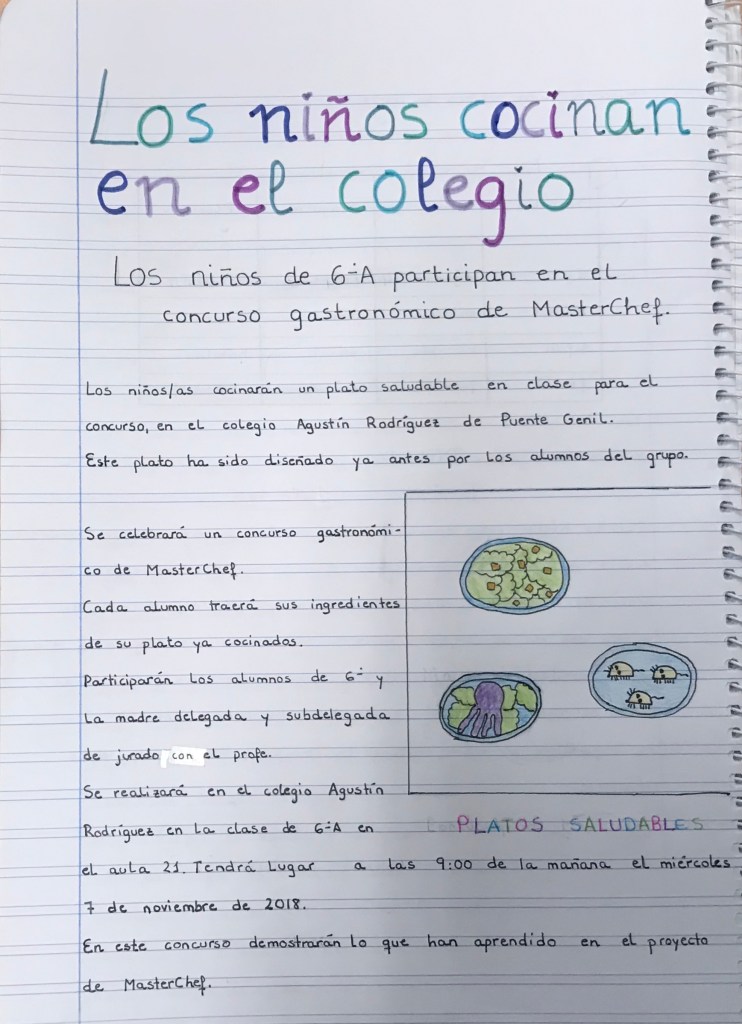 Los niños cocinan
en el colegio
Los niños de 6º A participan en el
concurso gastronómico de MasterChef.
Los niños/as cocinarán un plato saludable en clase para el
concurso, en el colegio Agustín Rodríguez de Puente Genil.
Este plato ha sido diseñado ya antes por los alumnos del grupo.
Se celebrará un concurso gastronómi-
co de MasterChef.
Cada alumno traerá sus ingredientes
de su plato ya cocinados.
Participarán los alumnos de 6º y
la madre delegada y subdelegada
de jurado con el profe.
Se realizará en el colegio Agustín
Rodríguez en la clase de 6º A en
el aula 21. Tendrá lugar a las 9:00 de la mañana el miércoles
7 de noviembre de 2018.
En este concurso demostrarán lo que han aprendido en el proyecto
de MasterChef.
PLATOS SALUDABLES